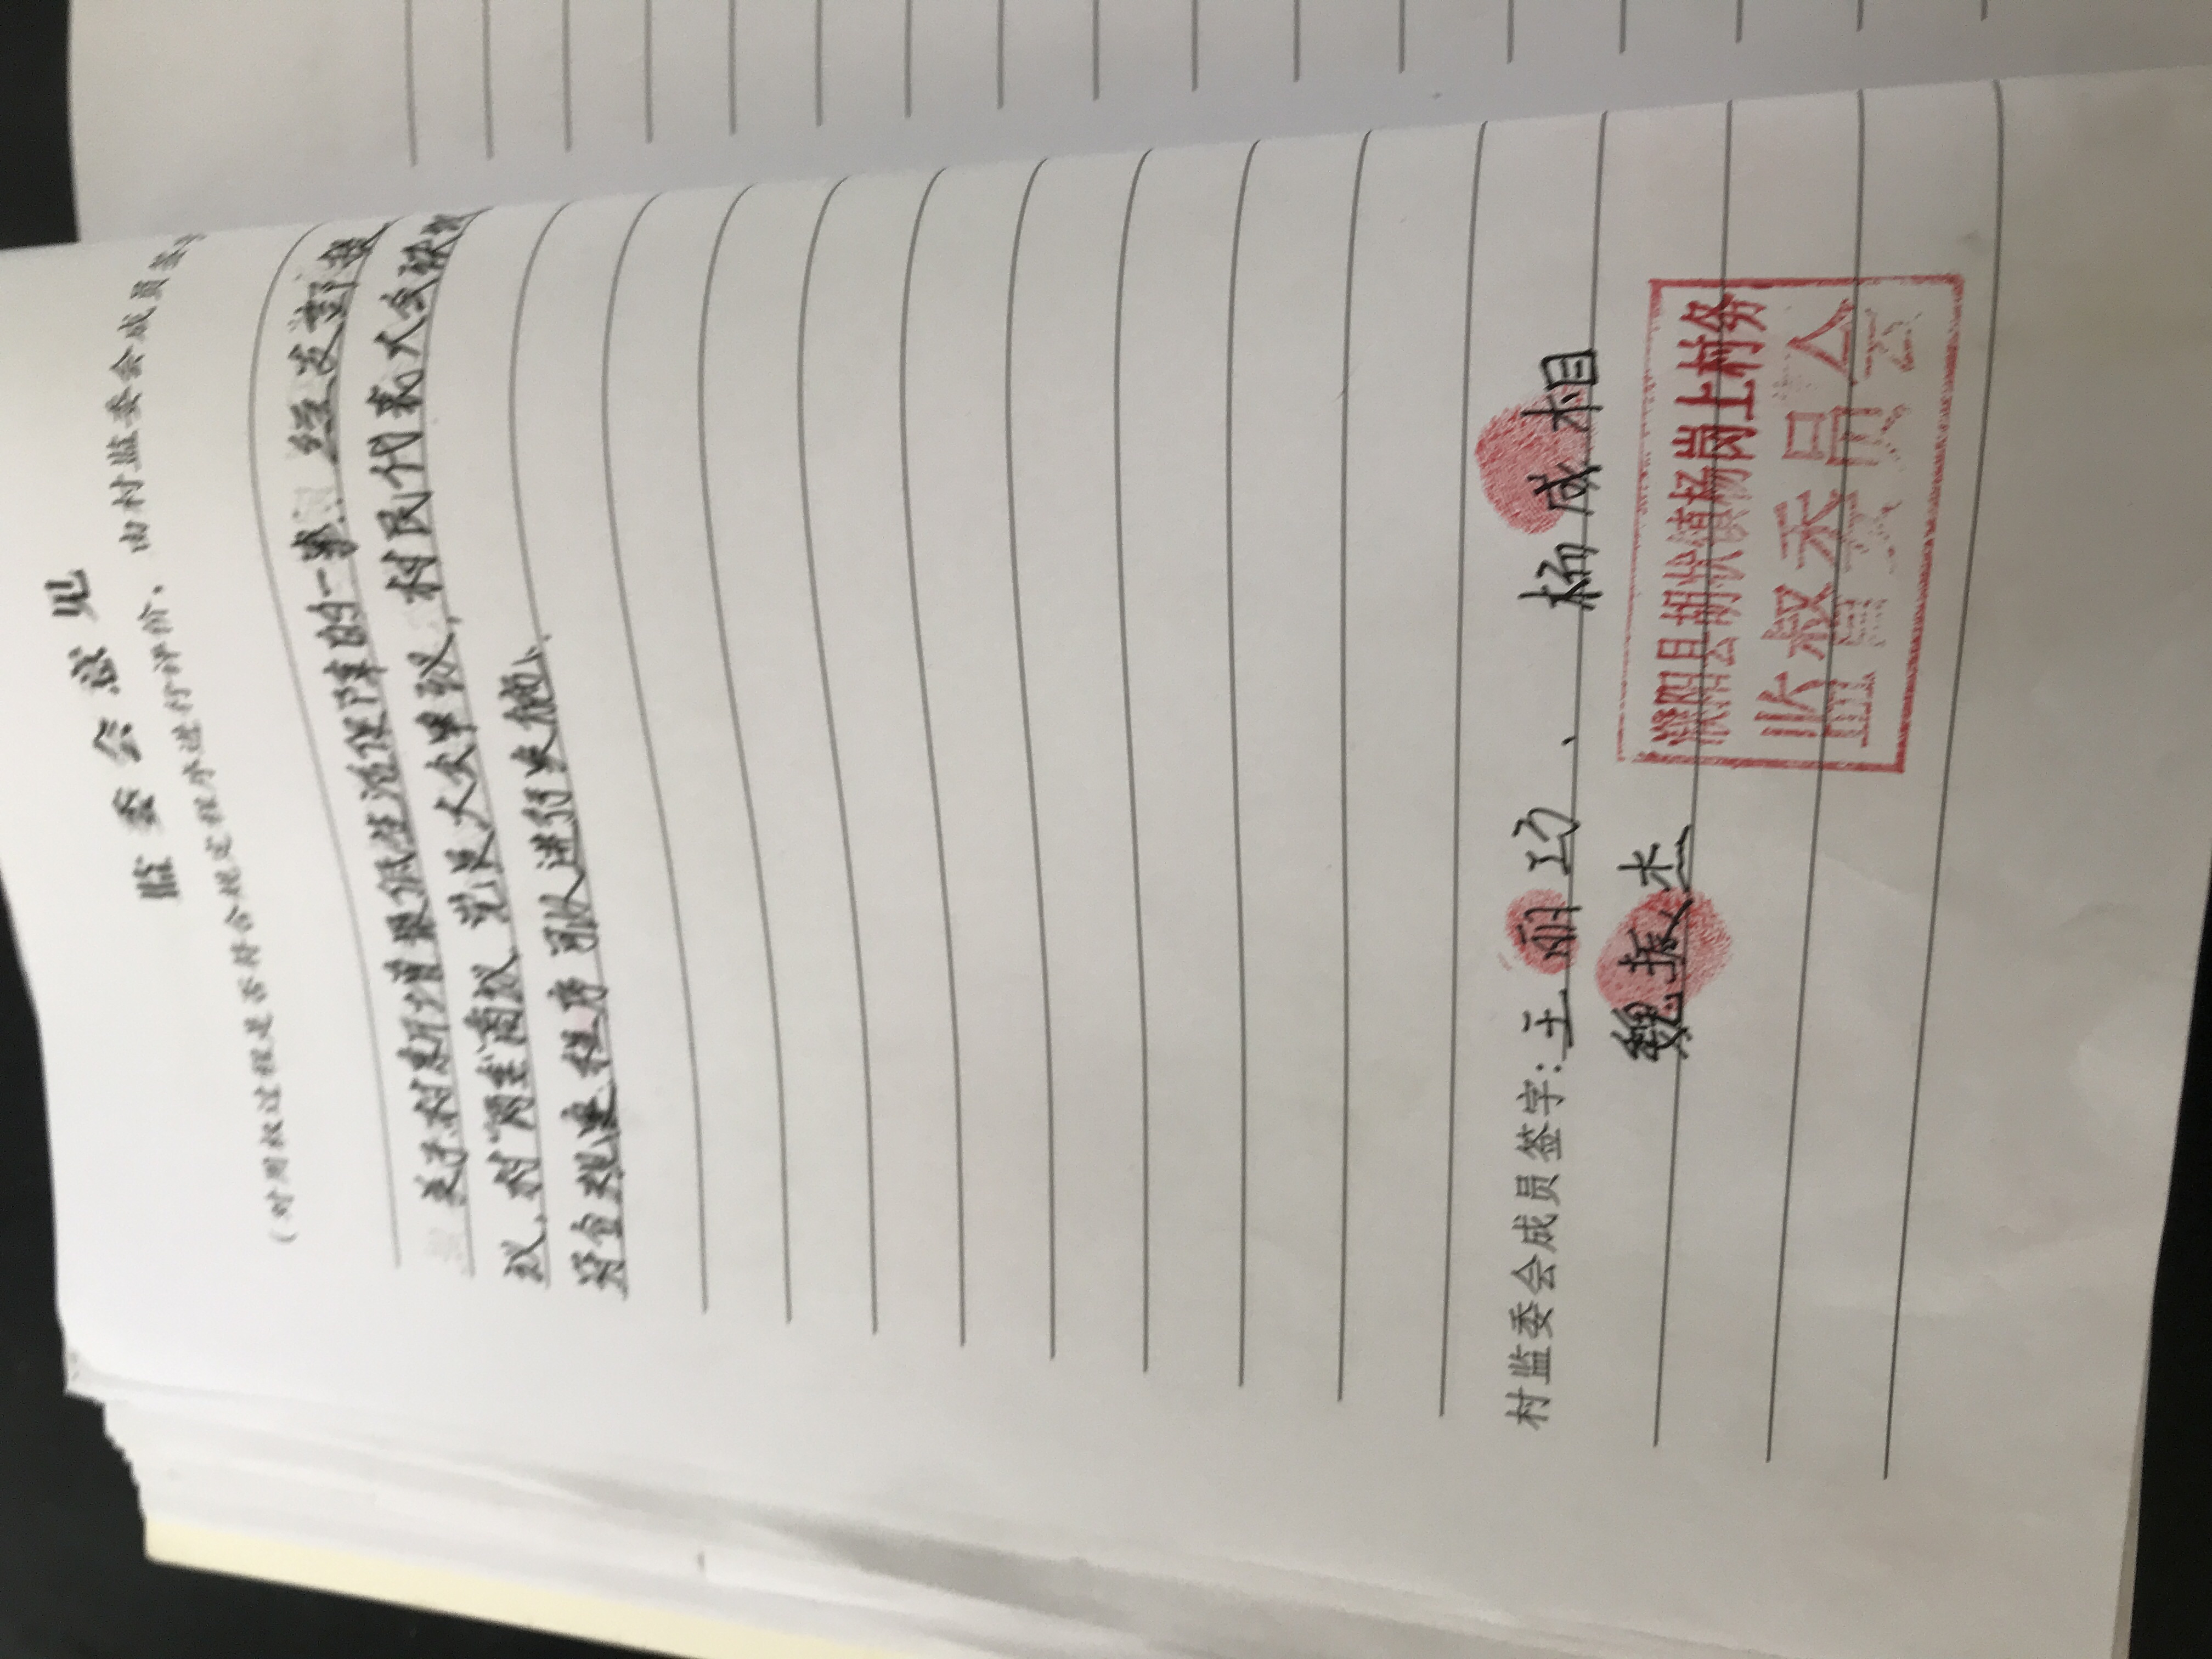 监委会意见
（对用权过程是否符合规定程序进行评价，由村监委会成员签字
关于村新增最低生活保障的一事，经支部提
议，村“两委”商议 党员大会审议，村民代表大会决议
符合规定程序可以进行实施。
村监委会成员签字：王丽巧、杨成相
魏振杰
濮阳县胡状镇杨岗上村务
监督委员会